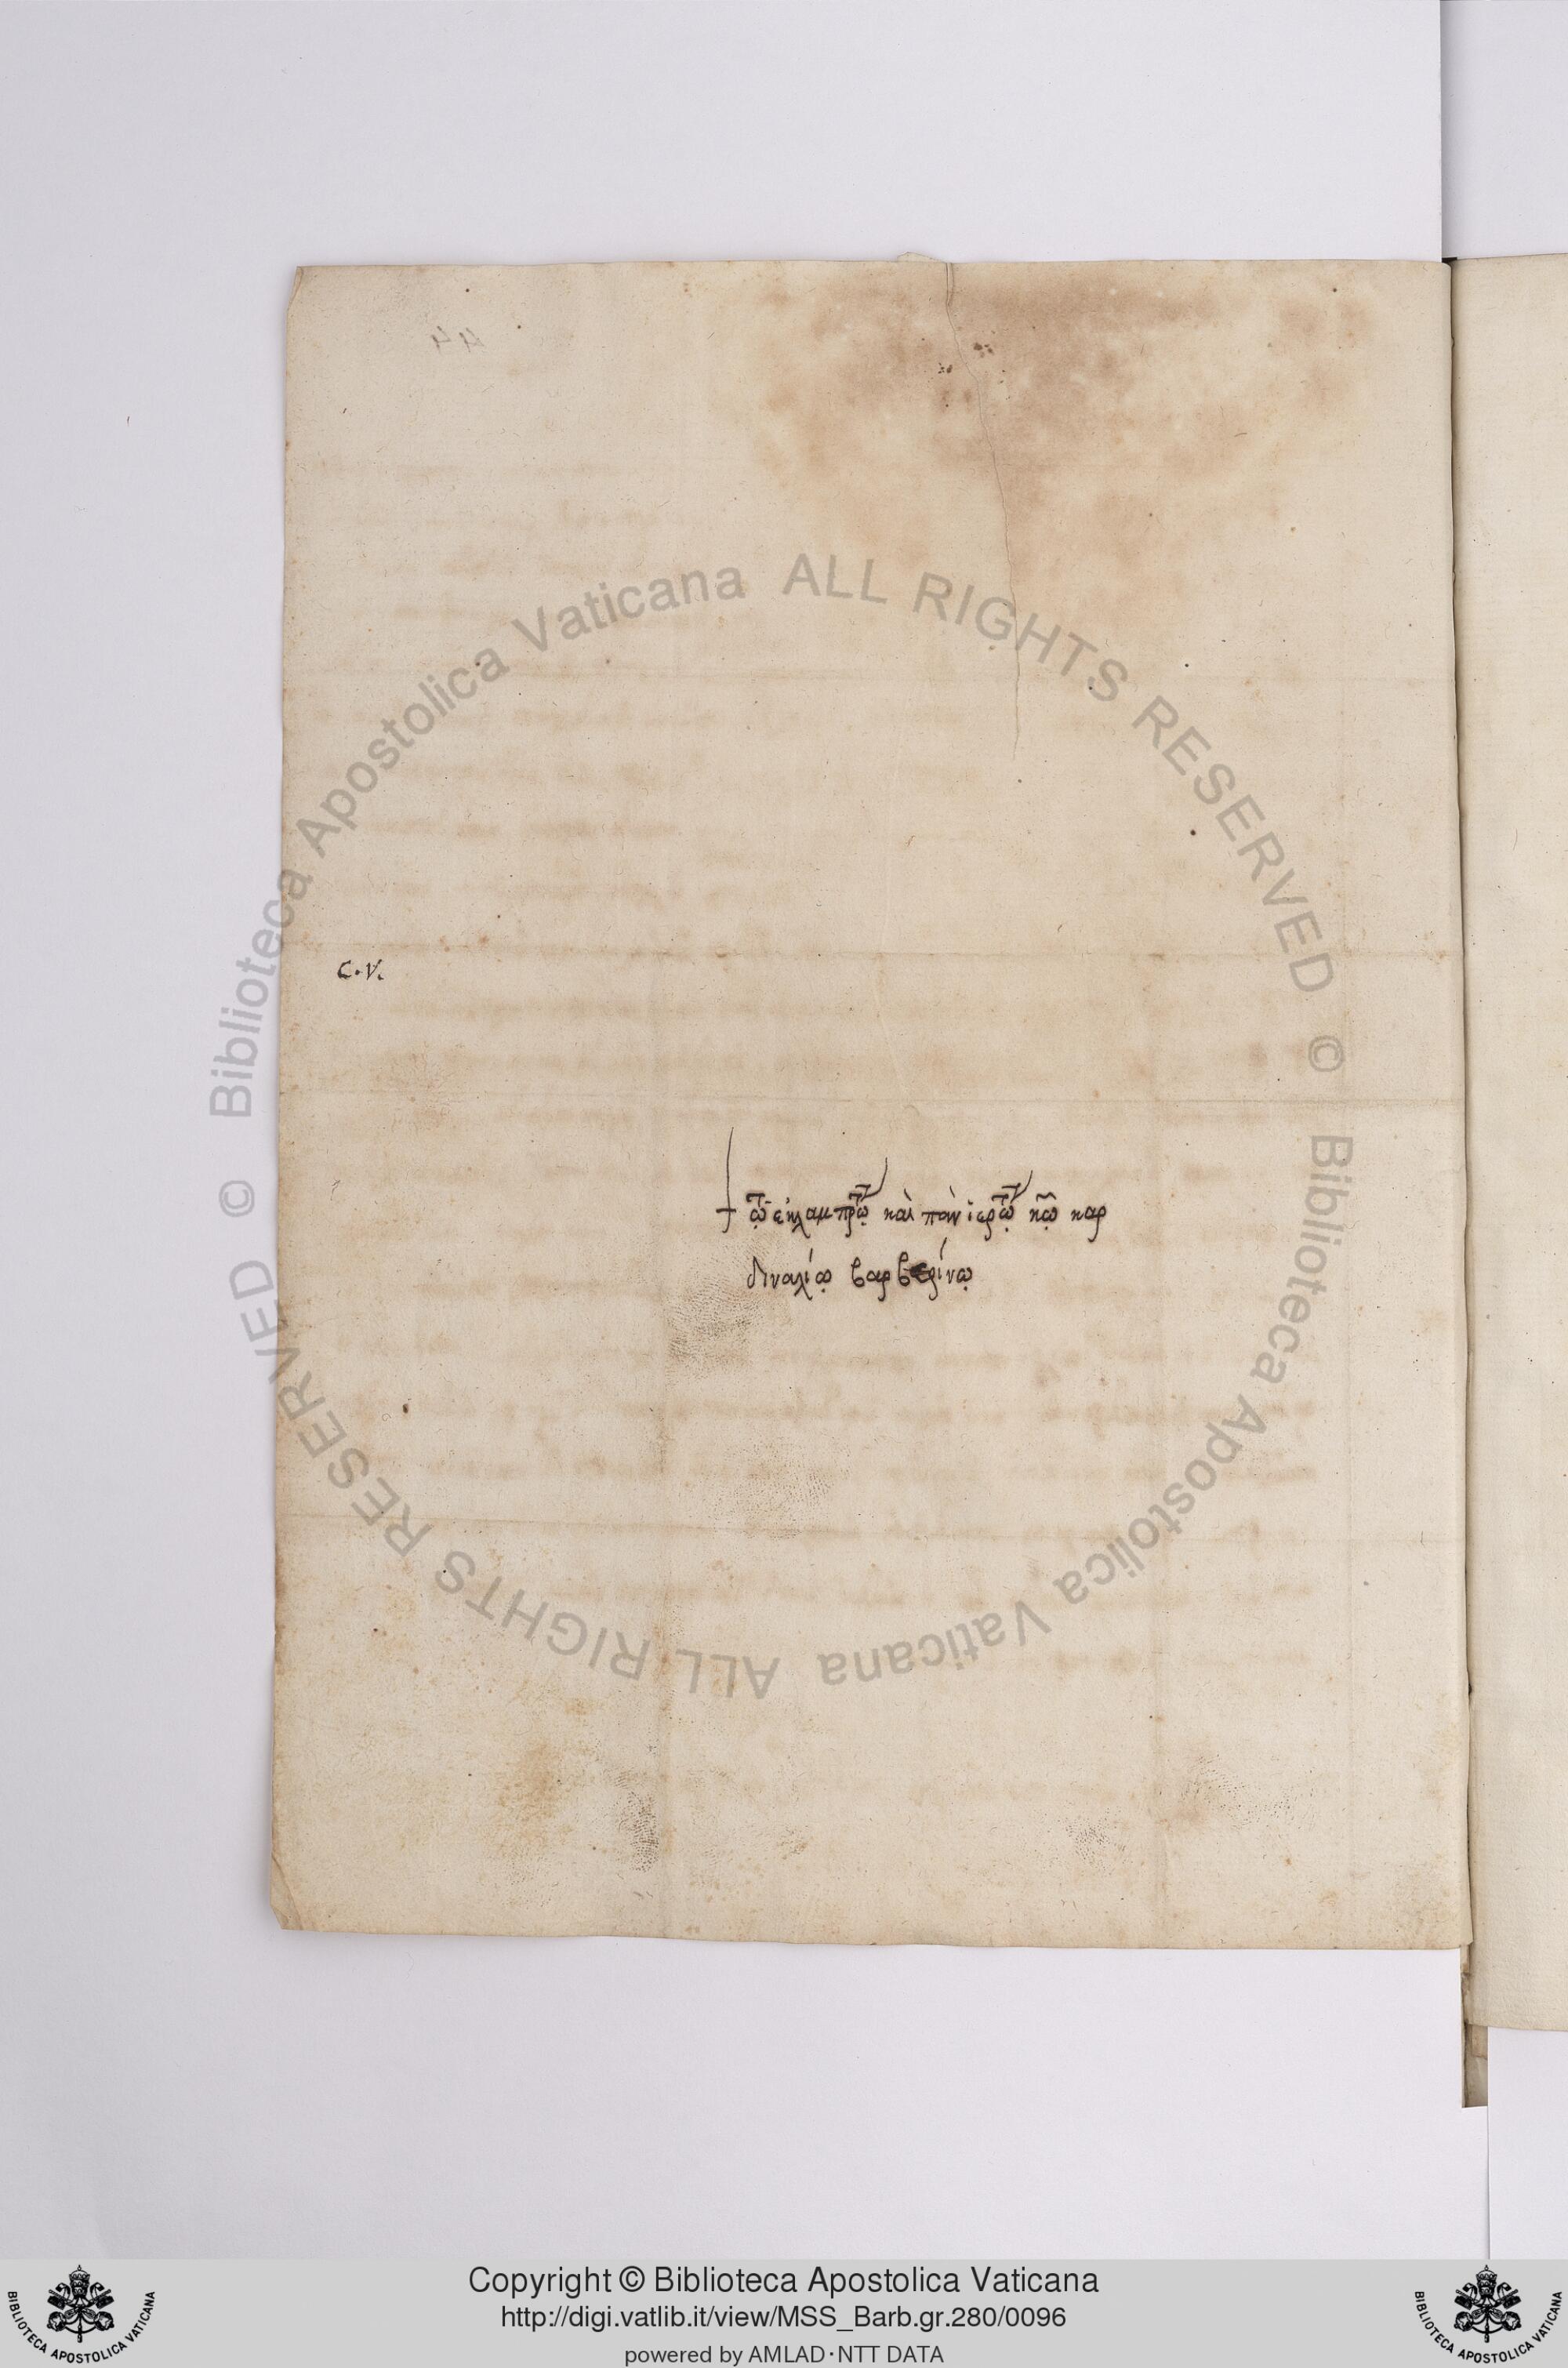 C.V.
† τῷ ἐκλαμπρωτ῀ῳ καὶ πὰνιερωτ῀ῳ κ῀ῳ καρ
διναλίῳ βαρβερίνῳ
Biblioteca Apostolica Vaticana ALL RIGHTS RESERVED ©
Biblioteca Apostolica Vaticana ALL RIGHTS RESERVED ©
Copyright © Biblioteca Apostolica Vaticana
http://digi.vatlib.it/view/MSS_Barb.gr.280/0096
powered by AMLAD·NTT DATA
BIBLIOTECA APOSTOLICA VATICANA
BIBLIOTECA APOSTOLICA VATICANA